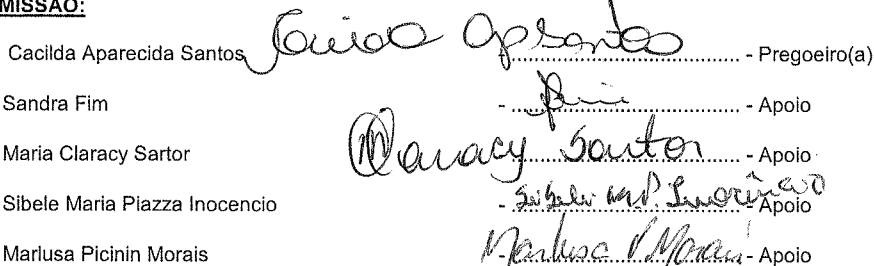 MISSÃO:
Cacilda Aparecida Santos Cacilda Ap Santos - Pregoeiro(a)
Sandra Fim - Fim - Apoio
Maria Claracy Sartor MClaracy Sartor - Apoio
Sibele Maria Piazza Inocencio - Sibele M. P. Inocêncio Apoio
Marlusa Picinin Morais - Marlusa P Morais - Apoio